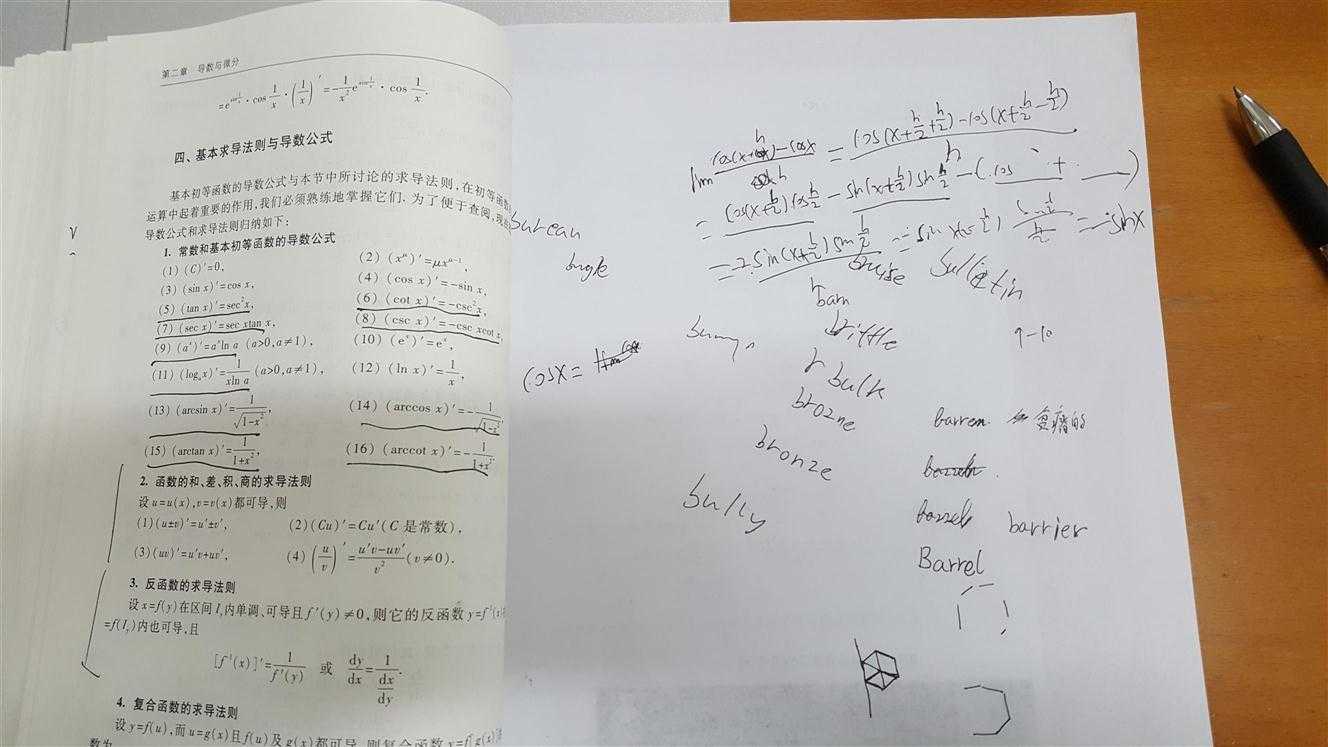 第二章 导数与微分
=e^{sin\frac{1}{x}}·cos\frac{1}{x}·(\frac{1}{x})′=-\frac{1}{x^2}e^{sin\frac{1}{x}}·cos\frac{1}{x}.
四、基本求导法则与导数公式
基本初等函数的导数公式与本节中所讨论的求导法则,在初等函数
运算中起着重要的作用,我们必须熟练地掌握它们.为了便于查阅,现
导数公式和求导法则归纳如下:
1. 常数和基本初等函数的导数公式
(1) (C)′=0, (2) (x^μ)′=μx^{μ-1},
(3) (sin x)′=cos x, (4) (cos x)′=-sin x,
(5) (tan x)′=sec^2x, (6) (cot x)′=-csc^2x,
(7) (sec x)′=sec xtan x, (8) (csc x)′=-csc xcot x
(9) (a^x)′=a^xln a (a>0,a≠1), (10) (e^x)′=e^x,
(11) (log_a x)′=\frac{1}{xln a}(a>0,a≠1), (12) (ln x)′=\frac{1}{x},
(13) (arcsin x)′=\frac{1}{\sqrt{1-x^2}}, (14) (arccos x)′=-\frac{1}{\sqrt{1-x^2}}
(15) (arctan x)′=\frac{1}{1+x^2}, (16) (arccot x)′=-\frac{1}{1+x^2}.
2. 函数的和、差、积、商的求导法则
设u=u(x),v=v(x)都可导,则
(1)(u±v)′=u′±v′, (2)(Cu)′=Cu′(C是常数),
(3)(uv)′=u′v+uv′, (4)(\frac{u}{v})′=\frac{u′v-uv′}{v^2}(v≠0).
3. 反函数的求导法则
设x=f(y)在区间I_y内单调、可导且f′(y)≠0,则它的反函数y=f^{-1}(x)
=f(I_y)内也可导,且
[f^{-1}(x)]′=\frac{1}{f′(y)} 或 \frac{dy}{dx}=\frac{1}{\frac{dx}{dy}}.
4. 复合函数的求导法则
设y=f(u),而u=g(x)且f(u)及g(x)都可导,则复合函数y=f[g(x)]
数为
=\frac{cos(x+\frac{h}{2}+\frac{h}{2})-cos(x+\frac{h}{2}-\frac{h}{2})}{h}
bureau
bruise bulletin
barn
brittle 9-10
cosx=
bulk
brozne
barren 贫瘠的
bronze
bully
barrier
Barrel